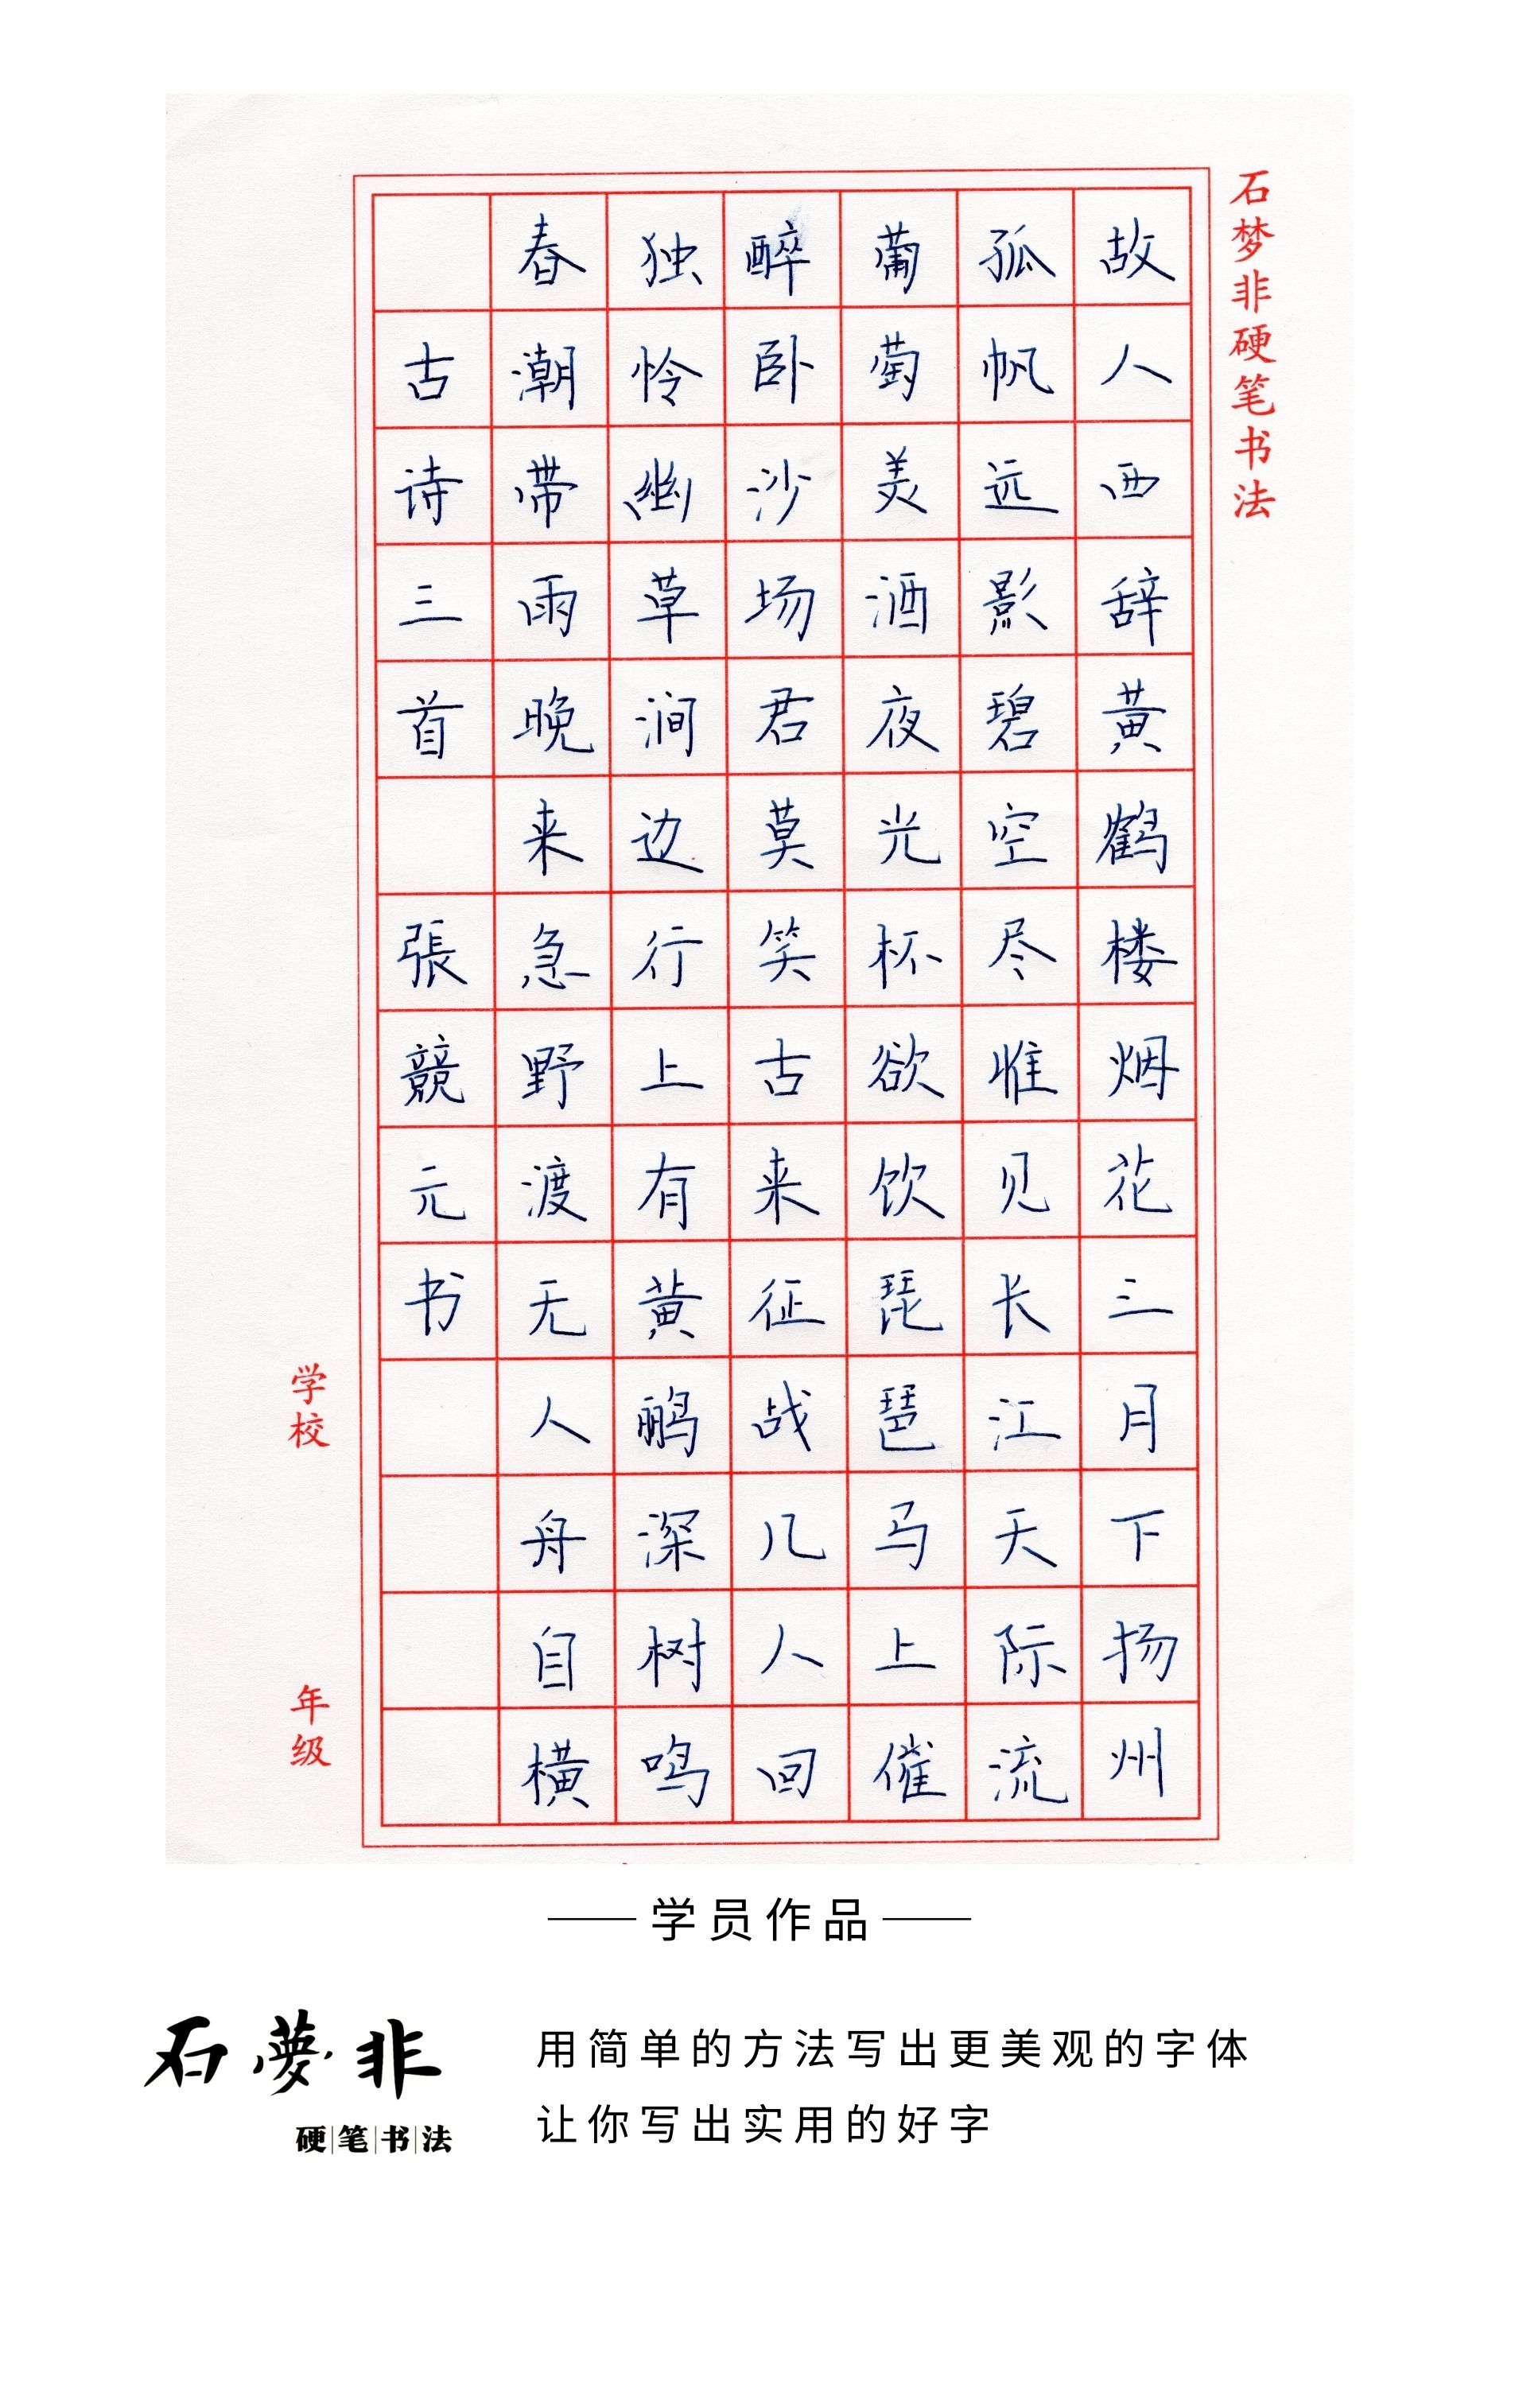 石梦非硬笔书法
故人西辞黄鹤楼烟花三月下扬州
孤帆远影碧空尽惟见长江天际流
葡萄美酒夜光杯欲饮琵琶马上催
醉卧沙场君莫笑古来征战几人回
独怜幽草涧边行上有黄鹂深树鸣
春潮带雨晚来急野渡无人舟自横
古诗三首 張競元书
学校 年级
学员作品
石夢非
硬笔书法
用简单的方法写出更美观的字体
让你写出实用的好字